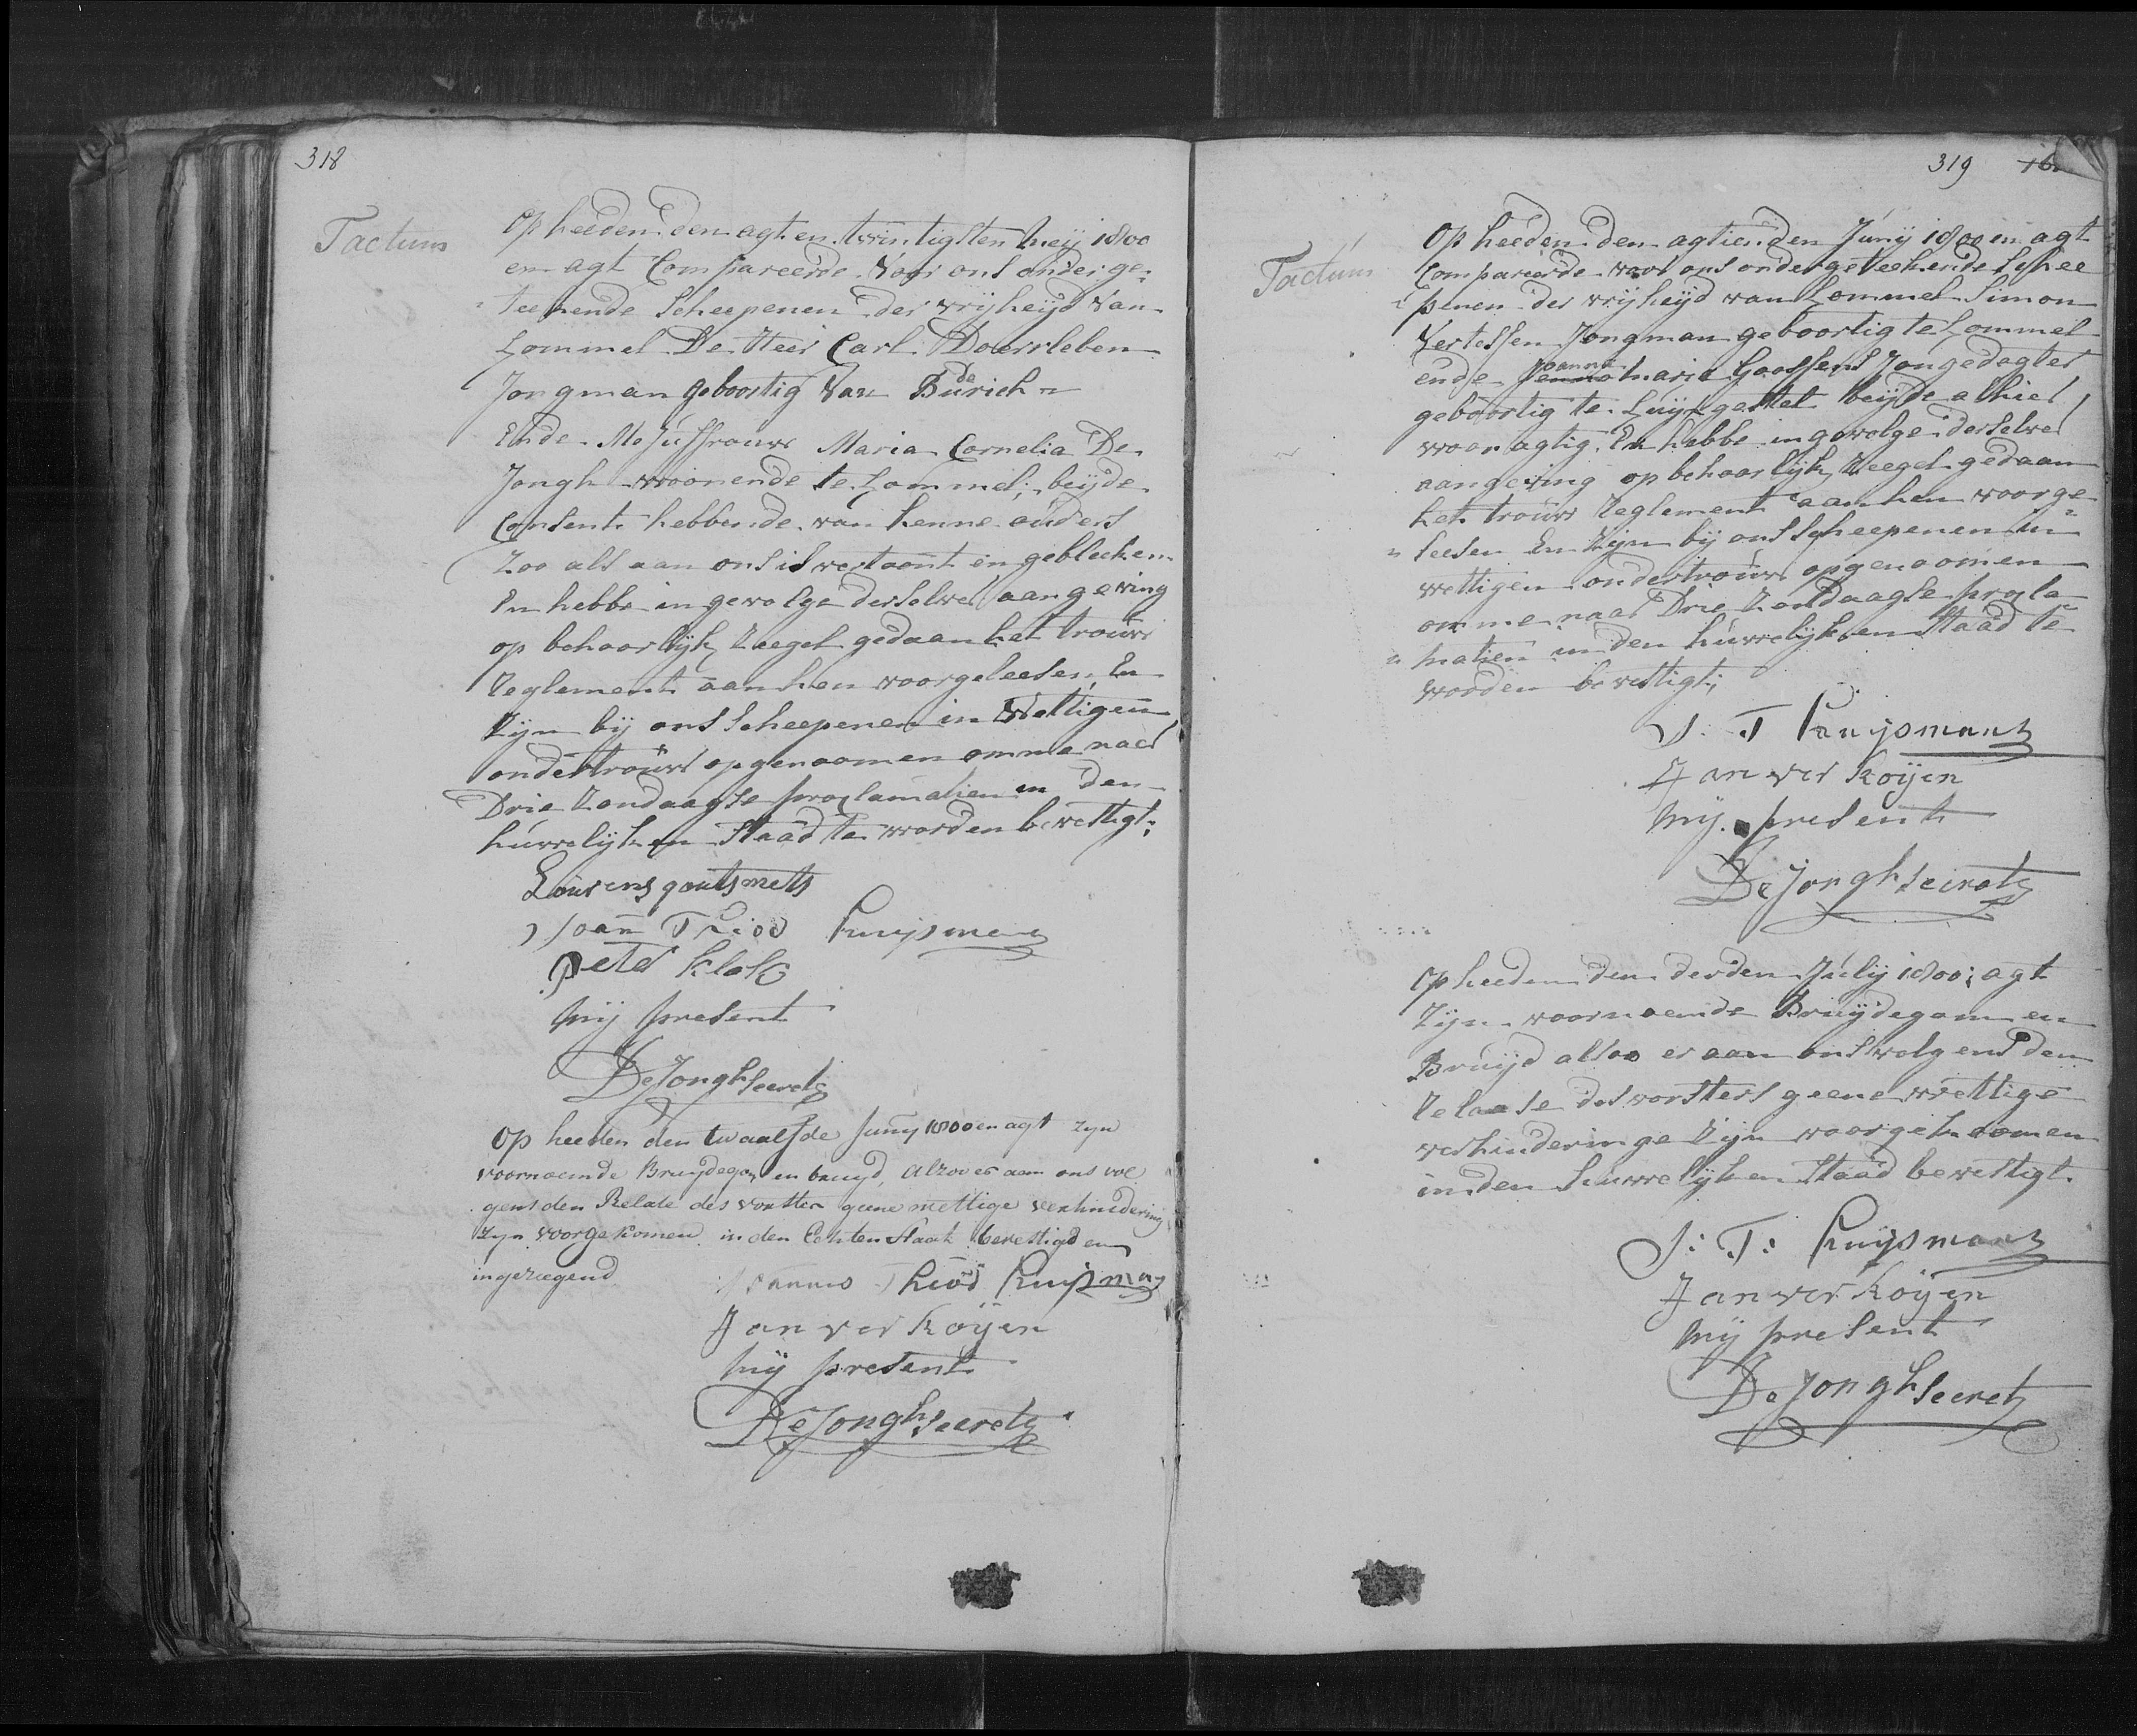 318
Tactum
Op heeden den agt en twintigsten Meij 1800
en agt Compareerde Voor ons onderge-
teekende Scheepenen der vrijheijd Van
Lommel De Heer Carl Doerrleben
Jongman geboortig Van Burich
de
Ende Mejuffrouw Maria Cornelia De
Jongh woonende te Lommel; beijde
Consent hebbende van henne ouders
Zoo als aan ons is vertoont en gebleeken
En hebbe in gevolge derselver aangeving
op behoorlijk Zeegel gedaan het trouw
Reglement aan hen voorgeleesen, En
Zijn bij ons Scheepenen in Wettigen
ondertrouw opgenoomen omme naer
Drie Zondaagse proclamatien in den
huwelijken Staad te worden bevestigt;
Lourens goutsmets
Joan Theod Kuijsmans
Peter Klok
mij present
De Jongh Secrets
Op heeden den twaalfde Junij 1800 en agt zyn
voornoemde Bruijdegom en bruyd, alzoo er aan ons vol
gens den Relate des vorsters geene wettige verhindering
zyn voorgekomen in den Echten Staat bevestigd en
ingezegend
Joannes Theod Kuijsmans
Jan ver Koijen
mij present
De Jongh Secrets
319
Tactum
Op heeden den agtienden Junij 1800 en agt
Compareerde voor ons ondergeteekende Schee
penen der vrijheijd van Lommel Simon
Kertessen Jongman geboortig te Lommel
Joanna
ende Maria Goossens Jongedogter
geboortig te Luijksgestel beijde alhier
woonagtig. En hebbe in gevolge derselver
aangeving op behoorlijk Zeegel gedaan
het trouw Reglement aan hen voorge-
leesen En Zijn bij ons Scheepenen in
wettigen ondertrouw opgenoomen
omme naer Drie Zondaagse procla-
matien in den huwelijken Staad te
worden bevestigt;
J: T Kuijsmans
Jan ver Koijen
mij present
De Jongh Secrets
Op heeden den derden Julij 1800; agt
Zijn voornoemde Bruijdegom en
Bruijd alsoo er aan ons volgens den
Relaase des vorsters geene wettige
verhinderinge Zijn voorgekoomen
in den huwelijken Staad bevestigt
J: T: Kuijsmans
Jan ver Koijen
mij present
De Jongh Secrets